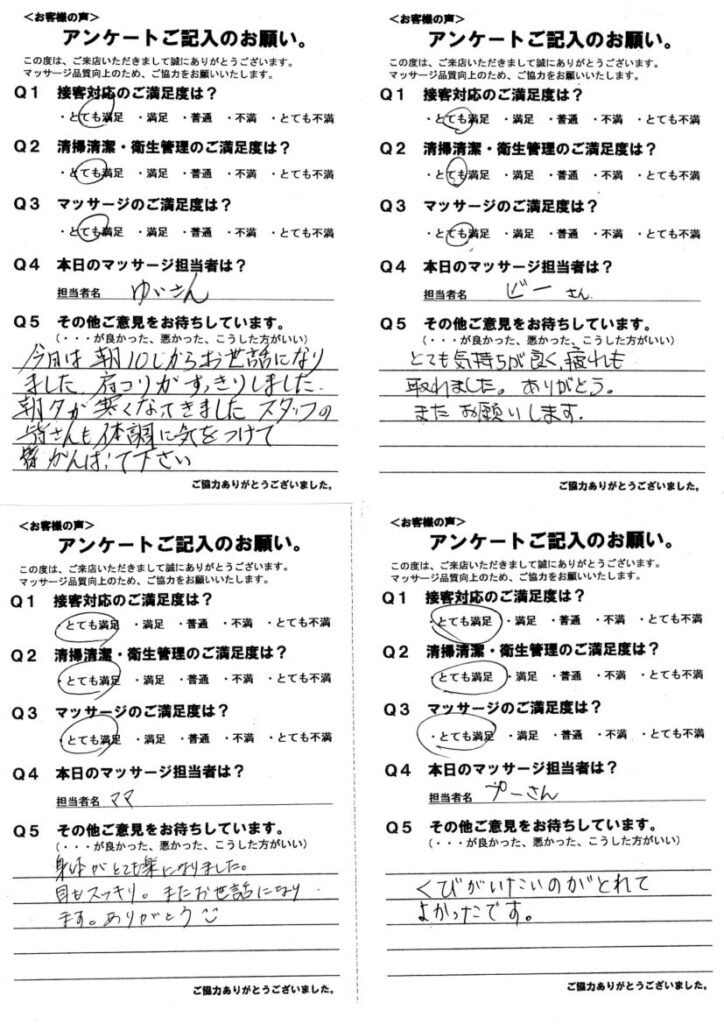 ＜お客様の声＞
アンケートご記入のお願い。
この度は、ご来店いただきまして誠にありがとうございます。
マッサージ品質向上のため、ご協力をお願いいたします。
Q1 接客対応のご満足度は？
・とても満足 ・満足 ・普通 ・不満 ・とても不満
Q2 清掃清潔・衛生管理のご満足度は？
・とても満足 ・満足 ・普通 ・不満 ・とても不満
Q3 マッサージのご満足度は？
・とても満足 ・満足 ・普通 ・不満 ・とても不満
Q4 本日のマッサージ担当者は？
担当者名 ゆいさん
Q5 その他ご意見をお待ちしています。
（・・・が良かった、悪かった、こうした方がいい）
今日は朝10じからお世話になり
ました 肩コリがすっきりしました、
朝夕が寒くなってきました スタッフの
皆さんも体調に気をつけて
がんばって下さい
ご協力ありがとうございました。
＜お客様の声＞
アンケートご記入のお願い。
この度は、ご来店いただきまして誠にありがとうございます。
マッサージ品質向上のため、ご協力をお願いいたします。
Q1 接客対応のご満足度は？
・とても満足 ・満足 ・普通 ・不満 ・とても不満
Q2 清掃清潔・衛生管理のご満足度は？
・とても満足 ・満足 ・普通 ・不満 ・とても不満
Q3 マッサージのご満足度は？
・とても満足 ・満足 ・普通 ・不満 ・とても不満
Q4 本日のマッサージ担当者は？
担当者名 ビー さん
Q5 その他ご意見をお待ちしています。
（・・・が良かった、悪かった、こうした方がいい）
とても気持ちが良く、疲れも
取れました。ありがとう。
またお願いします.
ご協力ありがとうございました。
＜お客様の声＞
アンケートご記入のお願い。
この度は、ご来店いただきまして誠にありがとうございます。
マッサージ品質向上のため、ご協力をお願いいたします。
Q1 接客対応のご満足度は？
・とても満足 ・満足 ・普通 ・不満 ・とても不満
Q2 清掃清潔・衛生管理のご満足度は？
・とても満足 ・満足 ・普通 ・不満 ・とても不満
Q3 マッサージのご満足度は？
・とても満足 ・満足 ・普通 ・不満 ・とても不満
Q4 本日のマッサージ担当者は？
担当者名 ママ
Q5 その他ご意見をお待ちしています。
（・・・が良かった、悪かった、こうした方がいい）
身体がとても楽になりました。
目もスッキリ。またお世話になり
ます。ありがとう
ご協力ありがとうございました。
＜お客様の声＞
アンケートご記入のお願い。
この度は、ご来店いただきまして誠にありがとうございます。
マッサージ品質向上のため、ご協力をお願いいたします。
Q1 接客対応のご満足度は？
・とても満足 ・満足 ・普通 ・不満 ・とても不満
Q2 清掃清潔・衛生管理のご満足度は？
・とても満足 ・満足 ・普通 ・不満 ・とても不満
Q3 マッサージのご満足度は？
・とても満足 ・満足 ・普通 ・不満 ・とても不満
Q4 本日のマッサージ担当者は？
担当者名 プーさん
Q5 その他ご意見をお待ちしています。
（・・・が良かった、悪かった、こうした方がいい）
くびがいたいのがとれて
よかったです。
ご協力ありがとうございました。